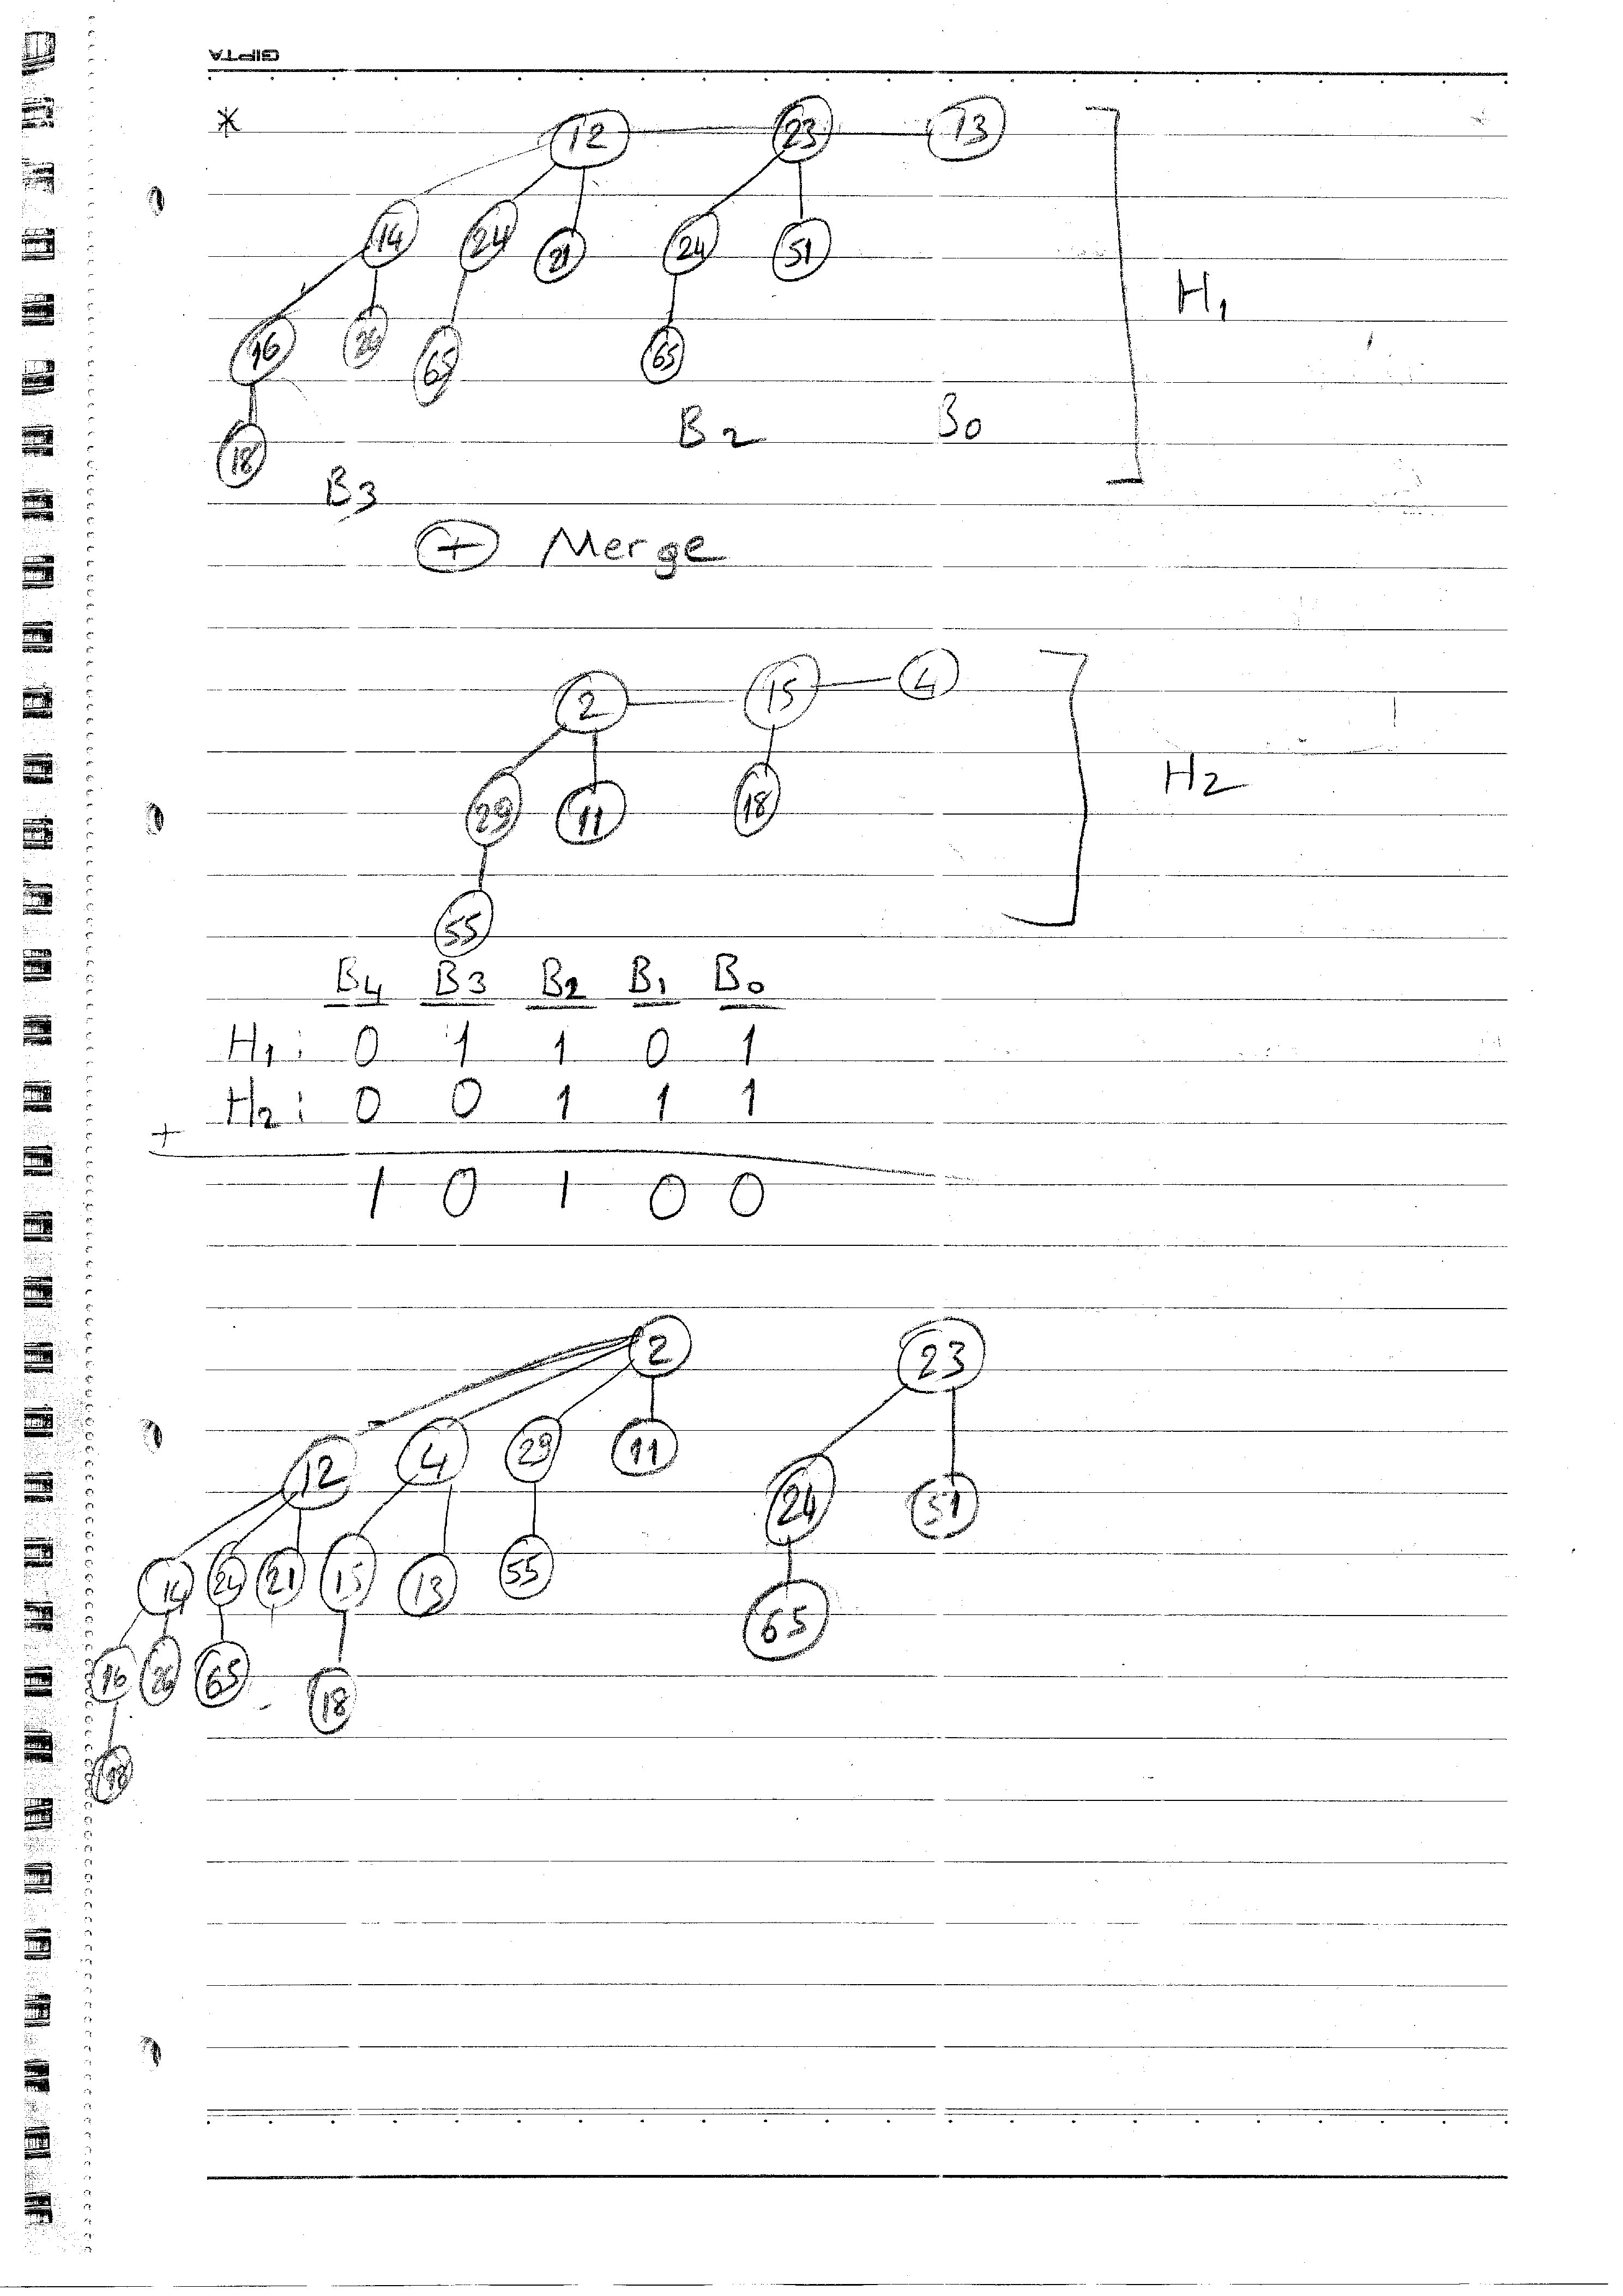 GIPTA
*
12 23 13
14 24 21 24 51
16 26 65 65
18
B2 B0
B3
H1
+ Merge
2 15 4
29 11 18
55
H2
B4 B3 B2 B1 B0
H1: 0 1 1 0 1
H2: 0 0 1 1 1
+
1 0 1 0 0
2 23
12 4 29 11
24 51
14 24 21 15 13 55
65
16 26 65 18
18